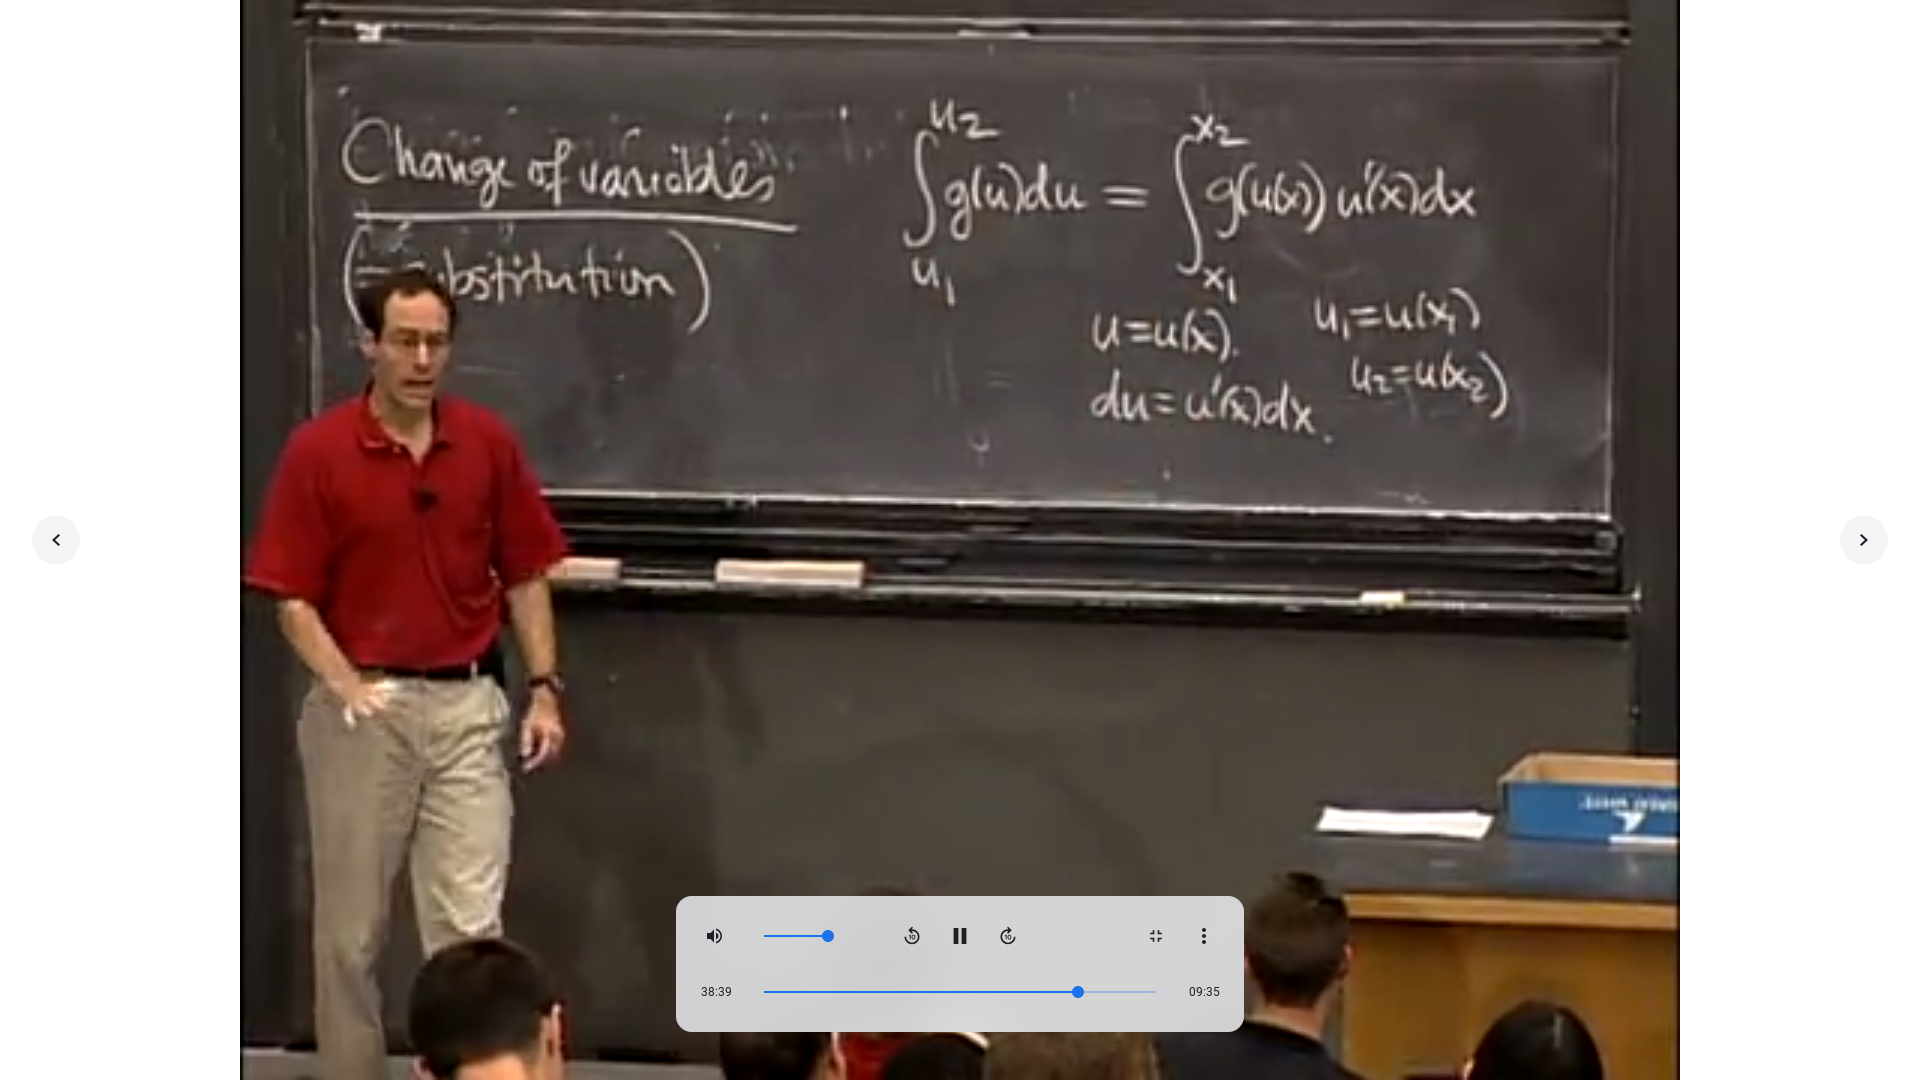 Change of variables
(= substitution)
∫_{u₁}^{u₂} g(u)du = ∫_{x₁}^{x₂} g(u(x)) u'(x)dx
u=u(x).
u₁=u(x₁)
u₂=u(x₂))
du=u'(x)dx.
10
10
38:39
09:35